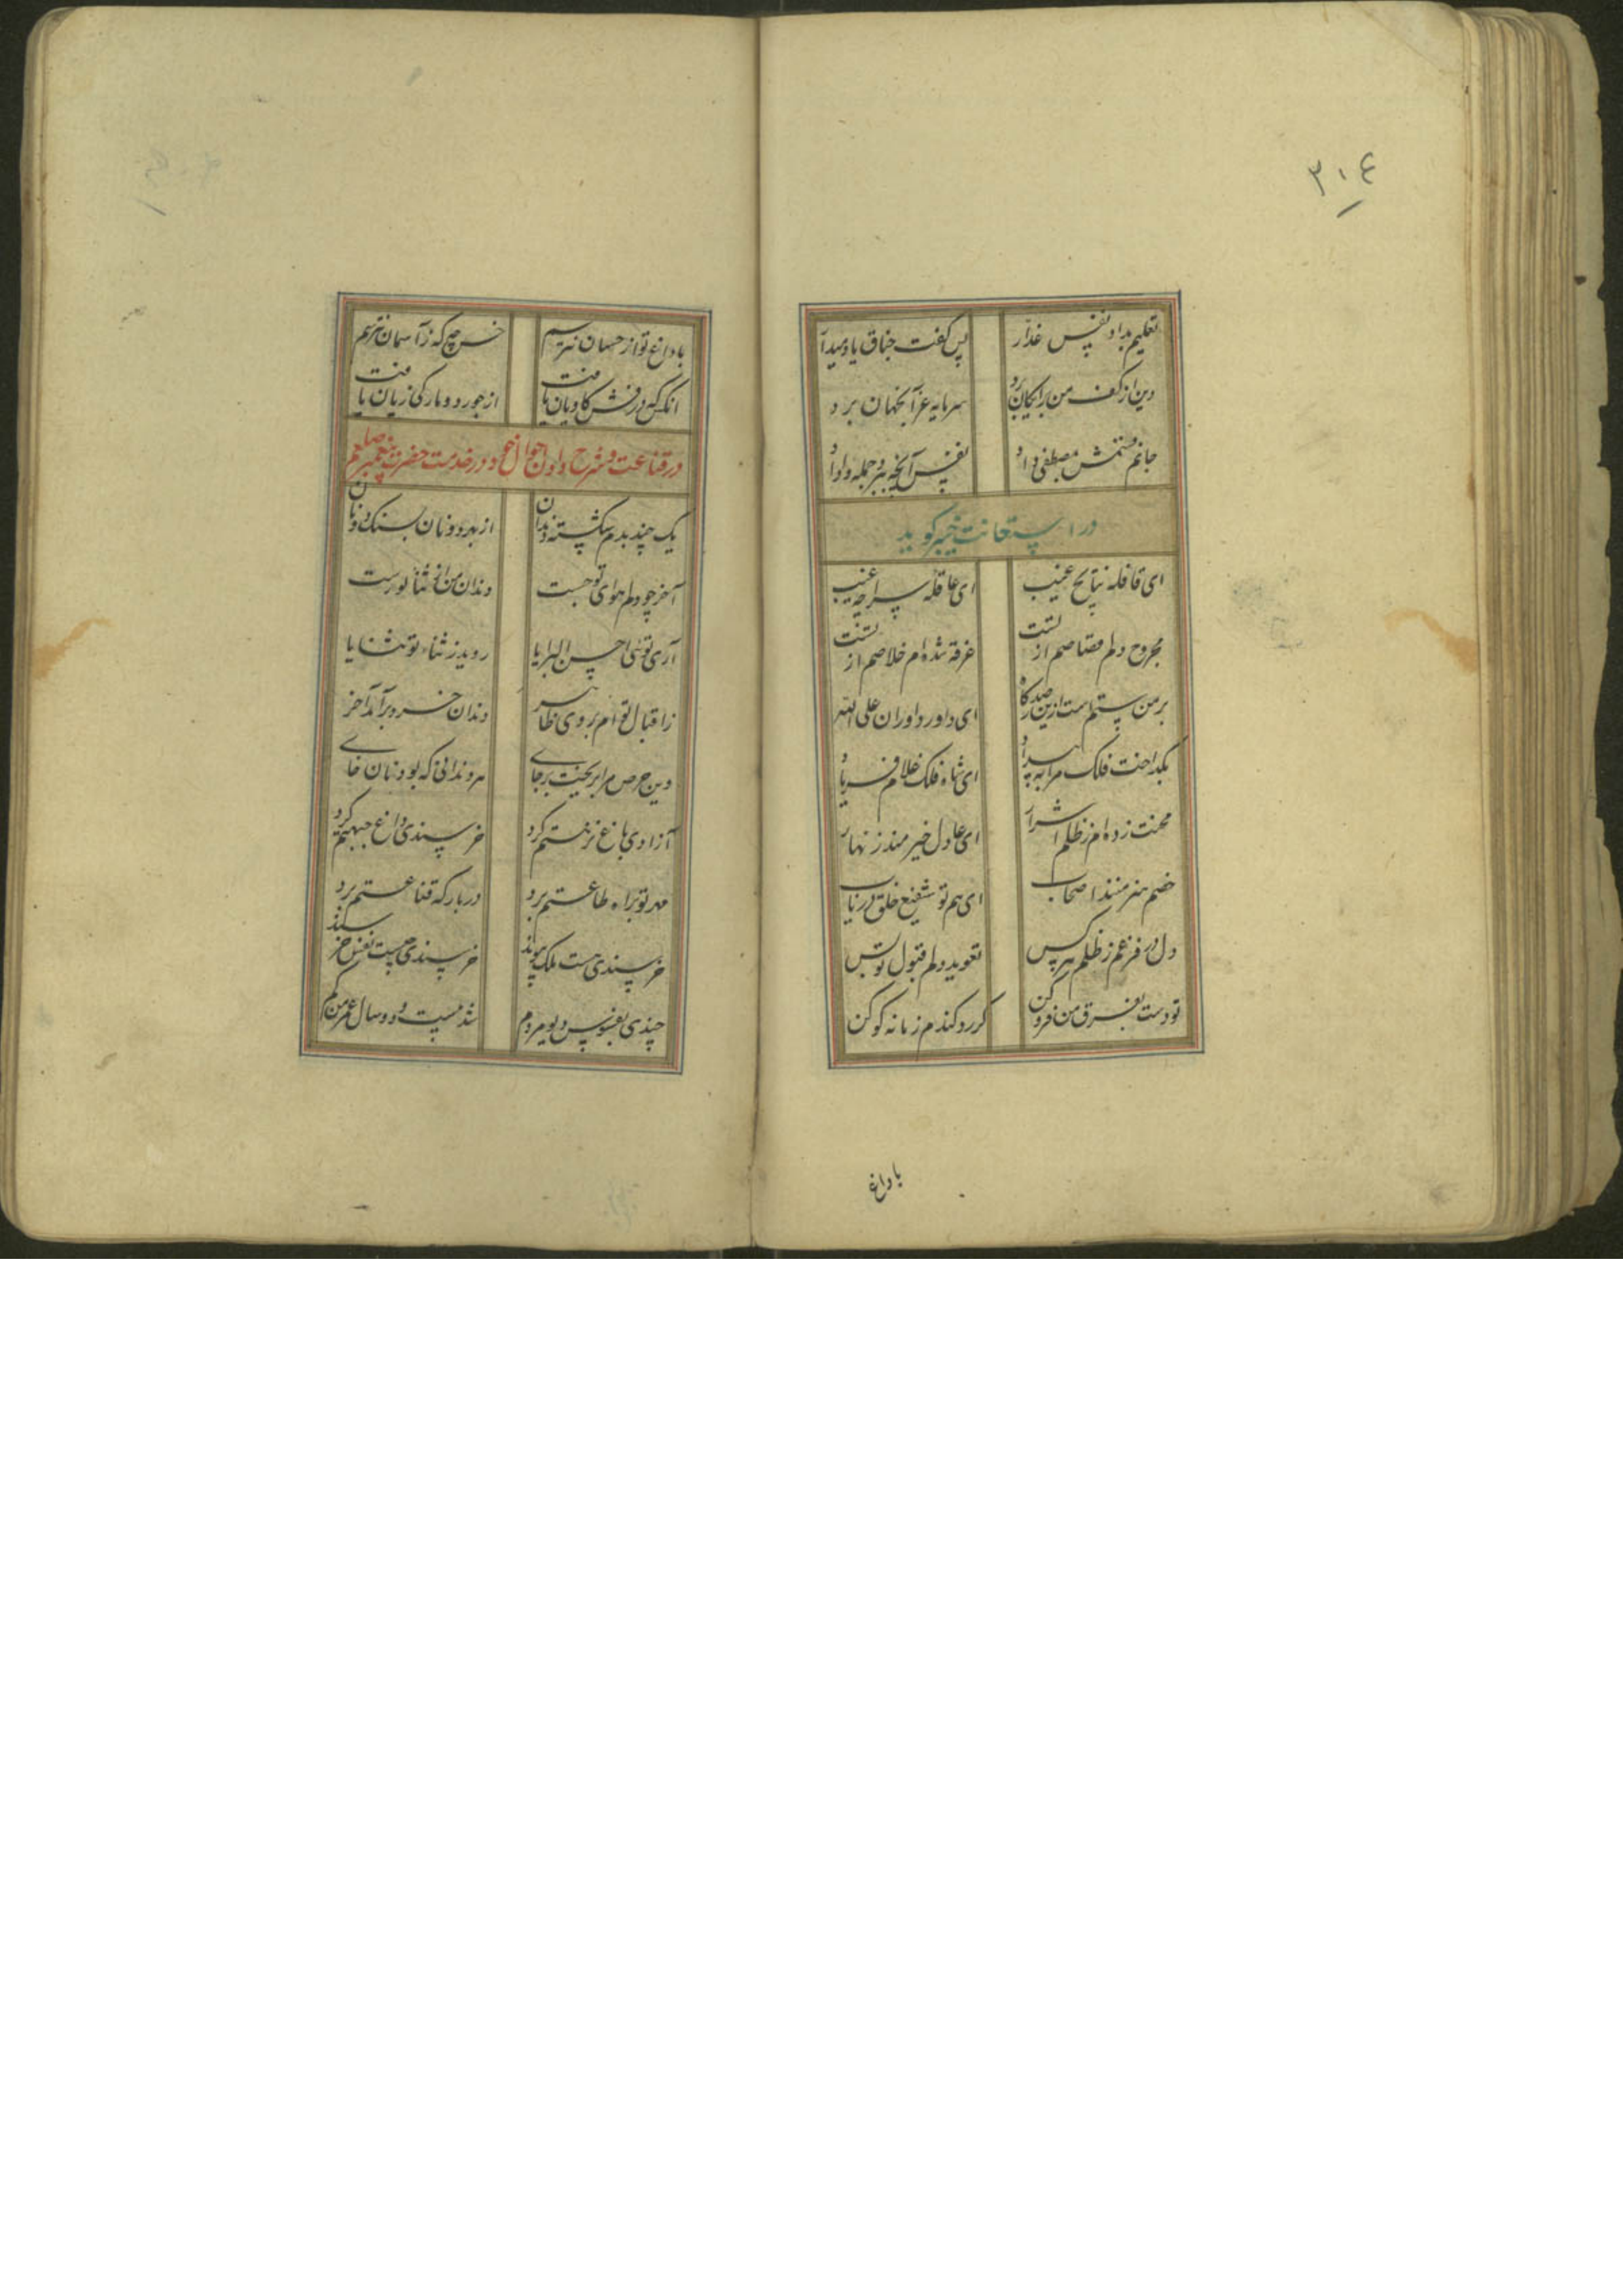 ۳۰۴
تعلیم بداد نفس غدار پس گفت خناق یاد میدار
دین از کف من برایکان برد سرمایه عز آنجهان برد
جانم مصطفی داد نفس آنچه ببرد جمله واداد
در استعانت خیبر کوید
ای قافله نتایج غیب ای عاقله سراچه غیب
مجروح دلم قصاصم از تست غرقه شده ام خلاصم از تست
بر من ستم است ازین ای داور داوران علی الله
بکداخت فلک مرا به ای شاه فلک غلام فریاد
محنت زده ام ز ظلم اشرار ای عادل خیر مند زنهار
خصم هنر منند اصحاب ای هم تو شفیع خلق دریاب
دل در فزعم ز ظلم هر کس تعوید دلم قبول تو بس
تو دست بفرق من فرو کن کر رد کندم زمانه کو کن
با داغ
با داغ تو از خسان نترسم خس چه که ز آسمان نترسم
انکس که درفش کاویان یافت از جور دو مار کی زیان یافت
در قناعت و شرح دادن احوال خود در خدمت حضرت پیغمبر صلعم
یک چند بدم شکسته دندان از بهر دو نان بسنک دو نان
آخر چو دلم هوای تو جست دندان من از ثنا تو رست
آری توئی احسن البرایا روید ز ثناء تو ثنایا
ز اقبال تو ام بروی ظاهر دندان خرد بر آمد آخر
وین حرص مرا بریخت بر جای هر دندانی که بود نان خای
آزادی باغ نزهتم کرد خرسندی داغ جبهتم کرد
مهر تو براه طاعتم برد در بارکه قناعتم برد
خرسندی هست ملک پیوند خرسندی چیست نفس خرسند
چندی بفسوس دیو مردم شد بیست و دو سال عمر من کم